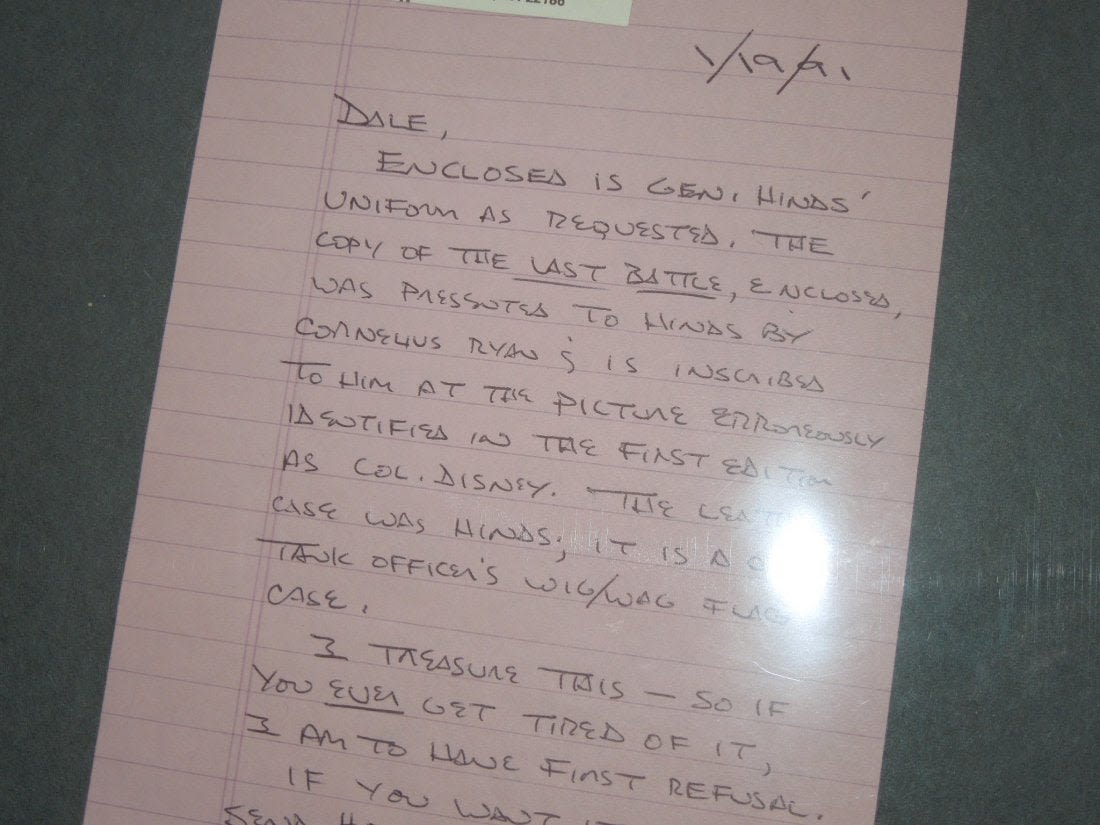 1/19/91
DALE,
ENCLOSED IS GEN. HINDS'
UNIFORM AS REQUESTED. THE
COPY OF THE LAST BATTLE, ENCLOSED,
WAS PRESENTED TO HINDS BY
CORNELIUS RYAN & IS INSCRIBED
TO HIM AT THE PICTURE ERRONEOUSLY
IDENTIFIED IN THE FIRST EDITION
AS COL. DISNEY. THE
CASE WAS HINDS; IT IS A
TANK OFFICER'S WIG/WAG FLAG
CASE.
I TREASURE THIS — SO IF
YOU EVER GET TIRED OF IT,
I AM TO HAVE FIRST REFUSAL.
IF YOU WANT
SEND